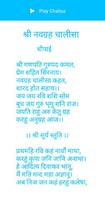 Play Chalisa
श्री नवग्रह चालीसा
चौपाई
श्री गणपति गुरुपद कमल,
प्रेम सहित सिरनाय।
नवग्रह चालीसा कहत,
शारद होत सहाय।।
जय जय रवि शशि सोम
बुध जय गुरु भृगु शनि राज।
जयति राहु अरु केतु ग्रह
करहुं अनुग्रह आज।।
।। श्री सूर्य स्तुति ।।
प्रथमहि रवि कहं नावौं माथा,
करहुं कृपा जनि जानि अनाथा।
हे आदित्य दिवाकर भानू,
मैं मति मन्द महा अज्ञानू।
अब निज जन कहं हरहु कलेषा,